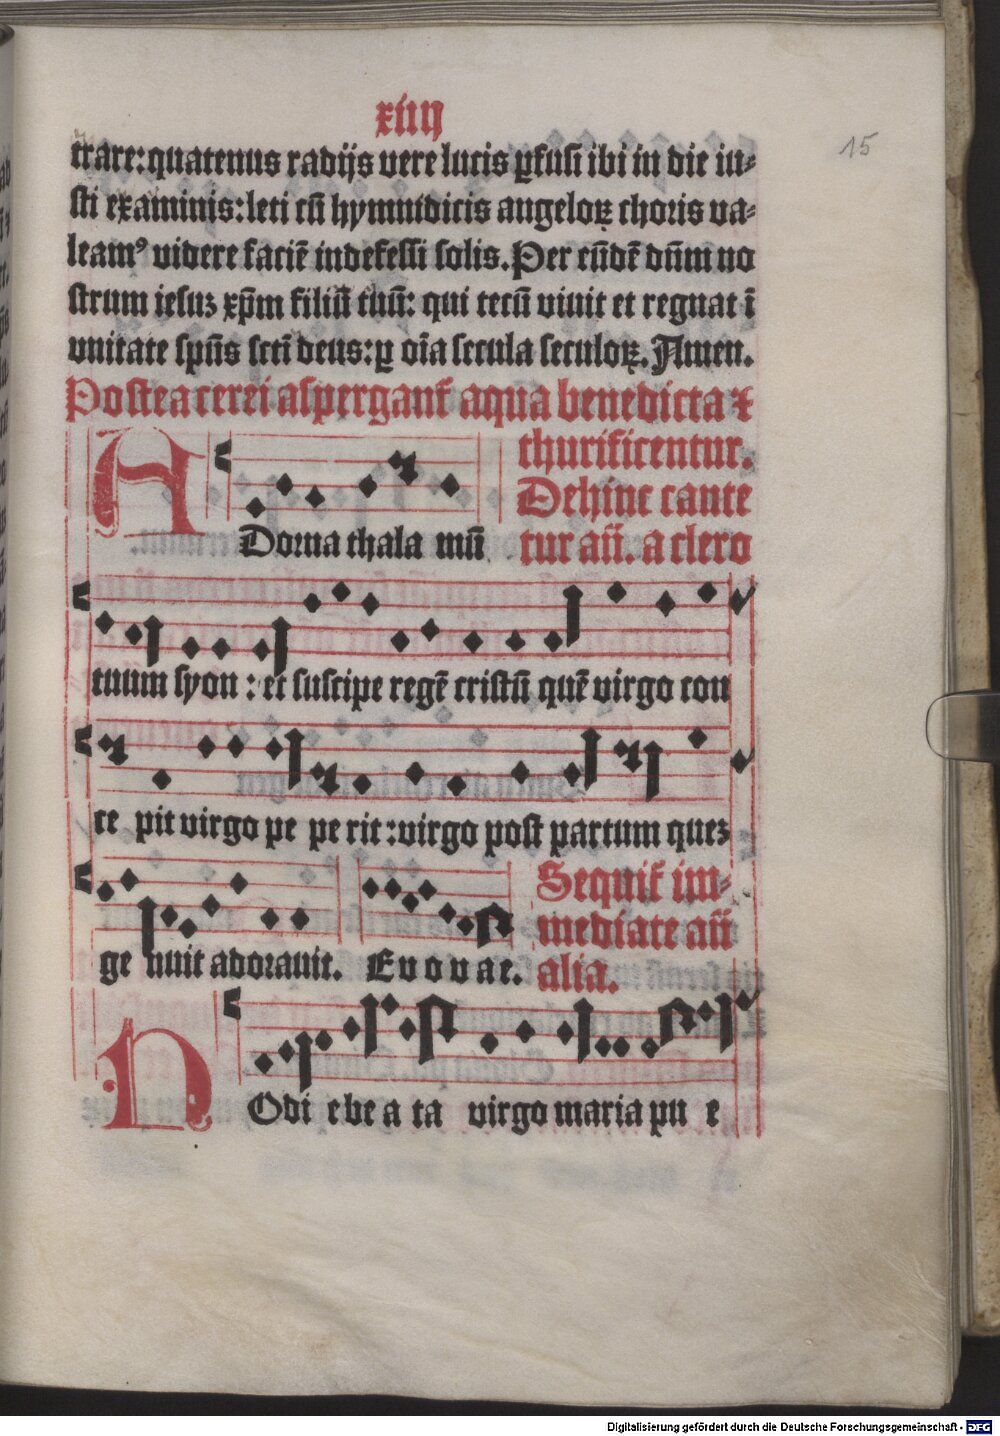 xiiij
15
trare: quatenus radijs vere lucis ꝑfusi ibi in die iu⸗
sti examinis: leti cū hymnidicis angeloꝝ choris va⸗
leamꝰ videre faciē indefessi solis. Per eūdē dn̄m no
strum iesuz xp̄m filiū tuū: qui tecū viuit et regnat ī
vnitate sp̄ūs sctī deus: ꝑ oīa secula seculoꝝ. Amen.
Postea cerei aspergant᷑ aqua benedicta ⁊
thurificentur.
Dehinc cante
tur añ. a clero
ADorna thala mū
tuum syon : et suscipe regē cristū quē virgo con
ce pit virgo pe pe rit : virgo post partum quez
ge nuit adorauit. Euouae.
Sequit᷑ im⸗
mediate añ
alia.
Odi e be a ta virgo maria pu e
Digitalisierung gefördert durch die Deutsche Forschungsgemeinschaft - DFG